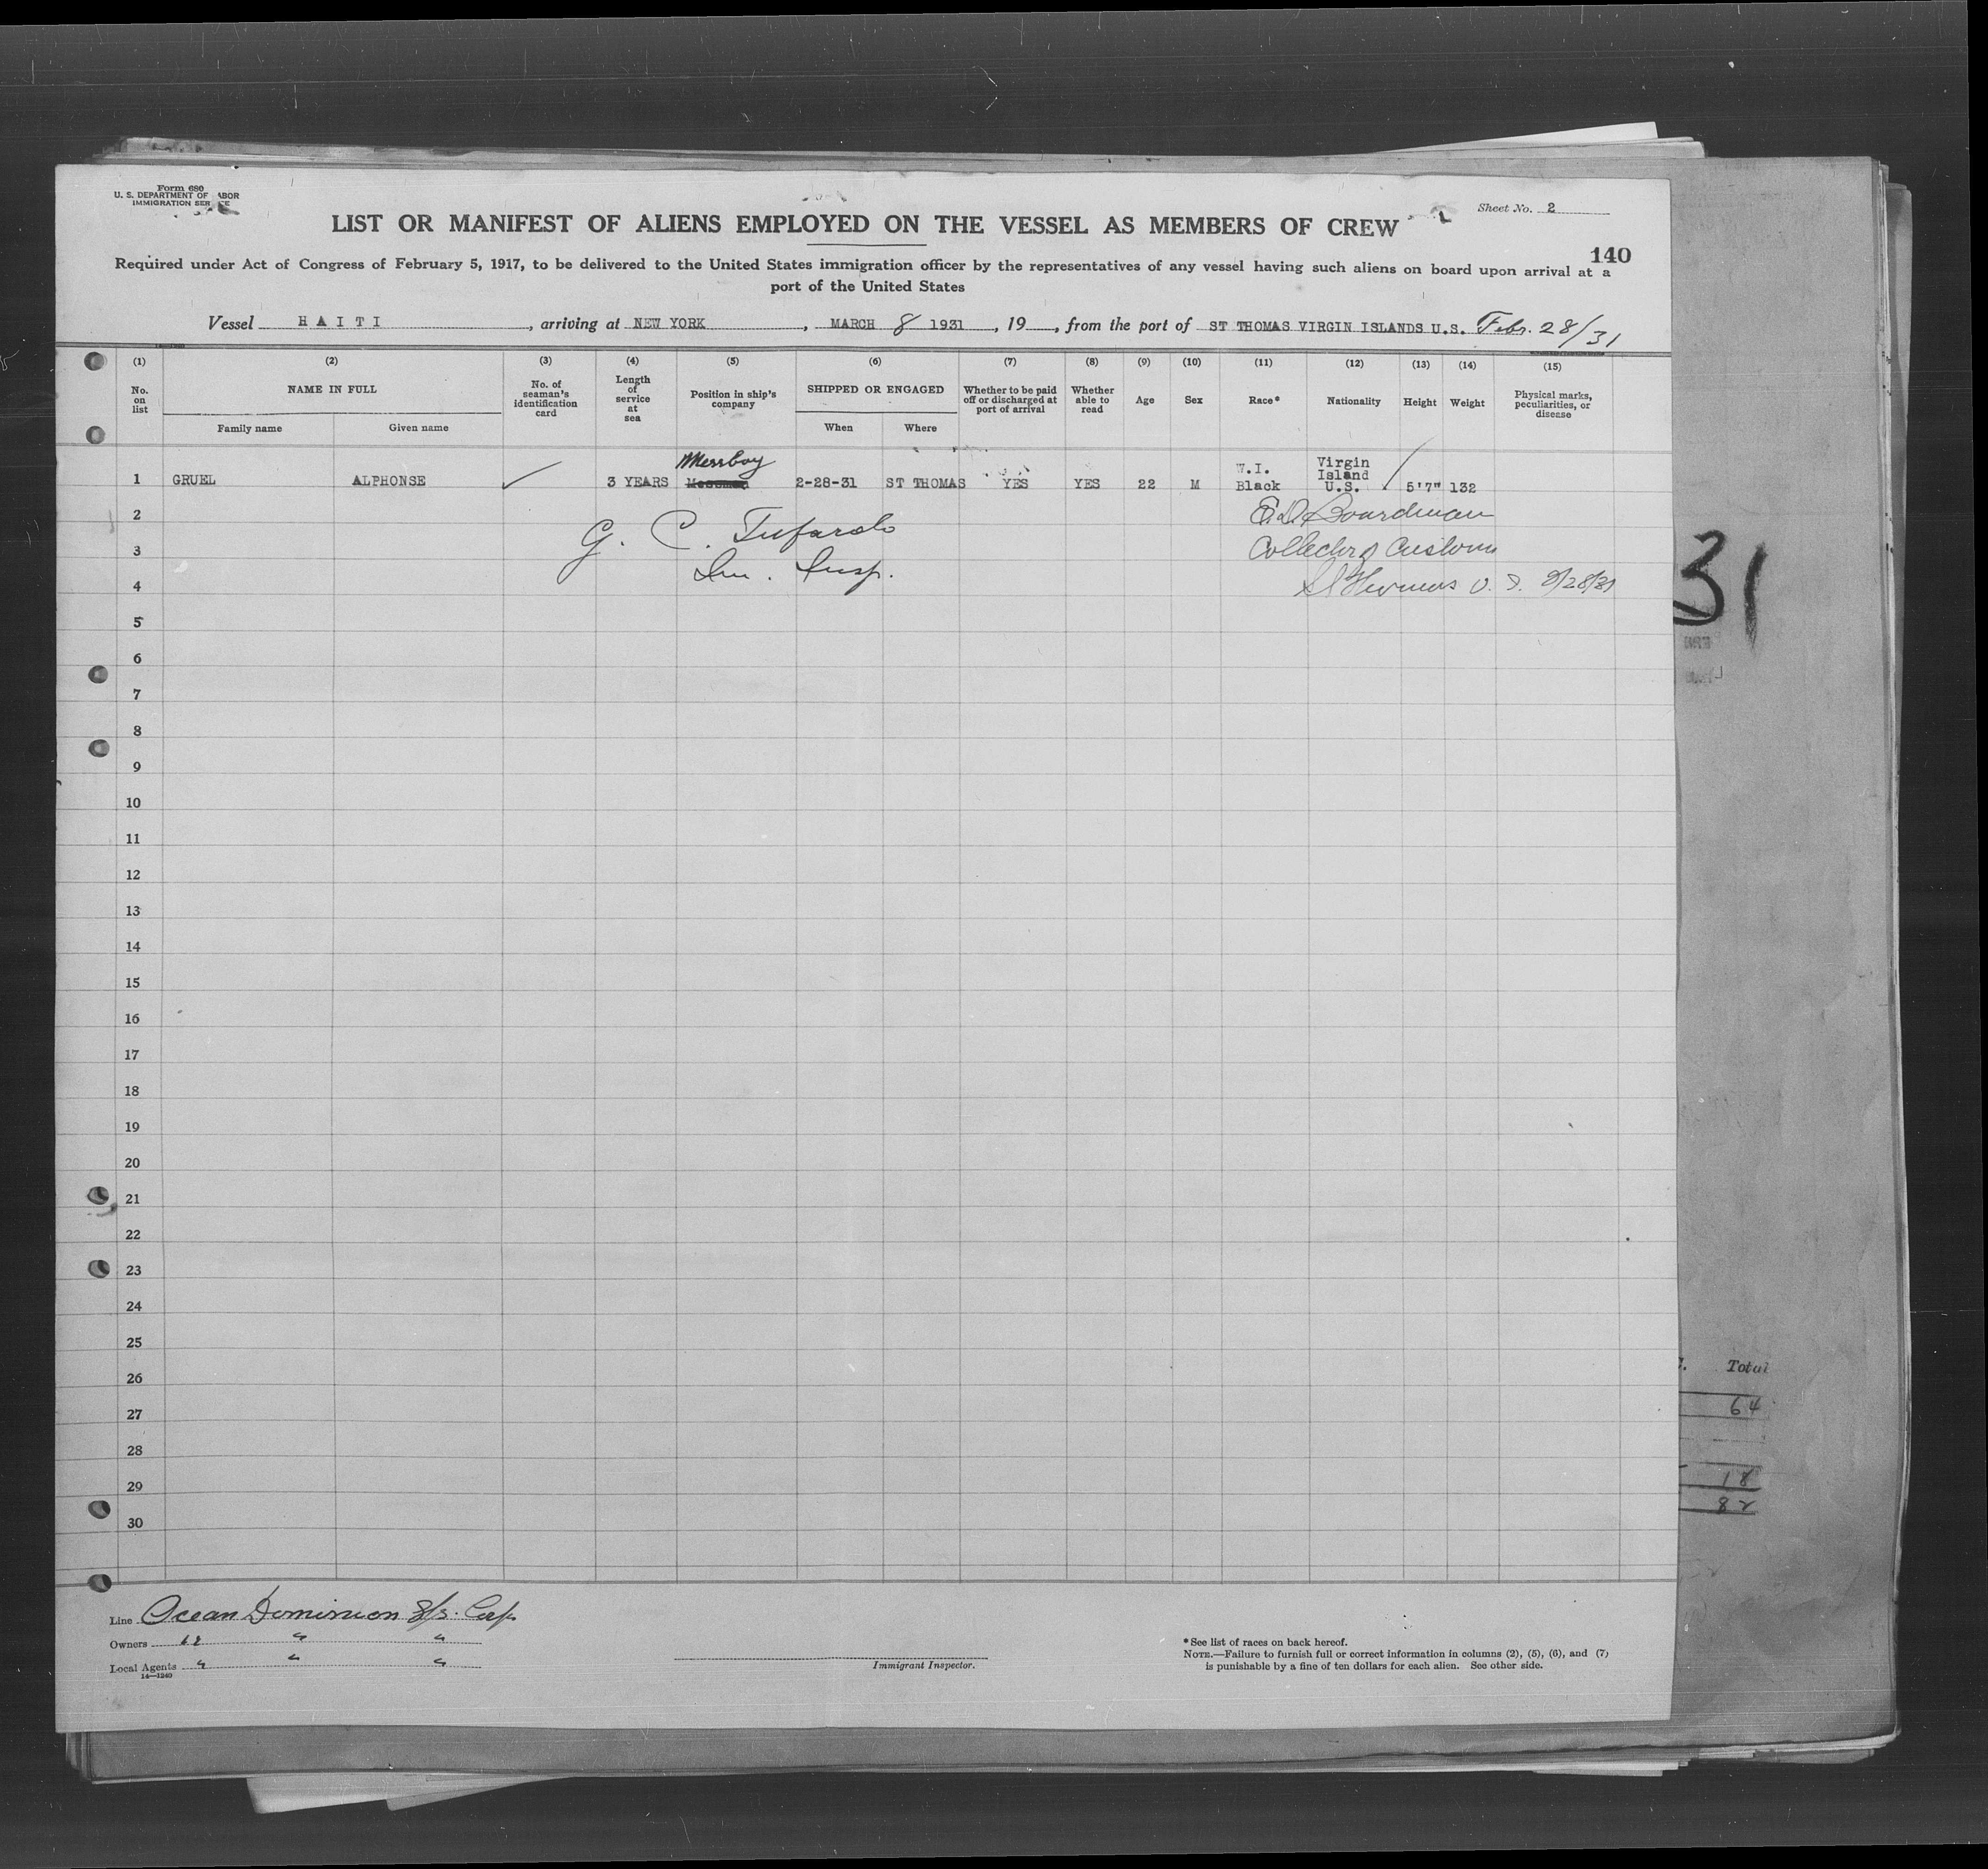 Form 680
U. S. DEPARTMENT OF LABOR
IMMIGRATION SERVICE
Sheet No. 2
LIST OR MANIFEST OF ALIENS EMPLOYED ON THE VESSEL AS MEMBERS OF CREW
140
Required under Act of Congress of February 5, 1917, to be delivered to the United States immigration officer by the representatives of any vessel having such aliens on board upon arrival at a
port of the United States
Vessel HAITI, arriving at NEW YORK, MARCH 8 1931, 19, from the port of ST THOMAS VIRGIN ISLANDS U.S. Febr. 28/31
(1) (2) (3) (4) (5) (6) (7) (8) (9) (10) (11) (12) (13) (14) (15)
No. on list
NAME IN FULL
Family name
Given name
No. of seaman's identification card
Length of service at sea
Position in ship's company
SHIPPED OR ENGAGED
When
Where
Whether to be paid off or discharged at port of arrival
Whether able to read
Age
Sex
Race*
Nationality
Height
Weight
Physical marks, peculiarities, or disease
Messboy
1 GRUEL ALPHONSE 3 YEARS 2-28-31 ST THOMAS YES YES 22 M W.I. Black Virgin Island U.S. 5'7" 132
2 Boardman
3 G. C. Tufarolo Collector of Customs
4 Im. Insp. St Thomas V. I. 2/28/31
5
6
7
8
9
10
11
12
13
14
15
16
17
18
19
20
21
22
23
24
25
26
27
28
29
30
31
Total
64
18
82
Line Ocean Dominion S/S. Corp.
Owners " " "
Local Agents " " "
14—1240
Immigrant Inspector.
* See list of races on back hereof.
NOTE.—Failure to furnish full or correct information in columns (2), (5), (6), and (7)
is punishable by a fine of ten dollars for each alien. See other side.